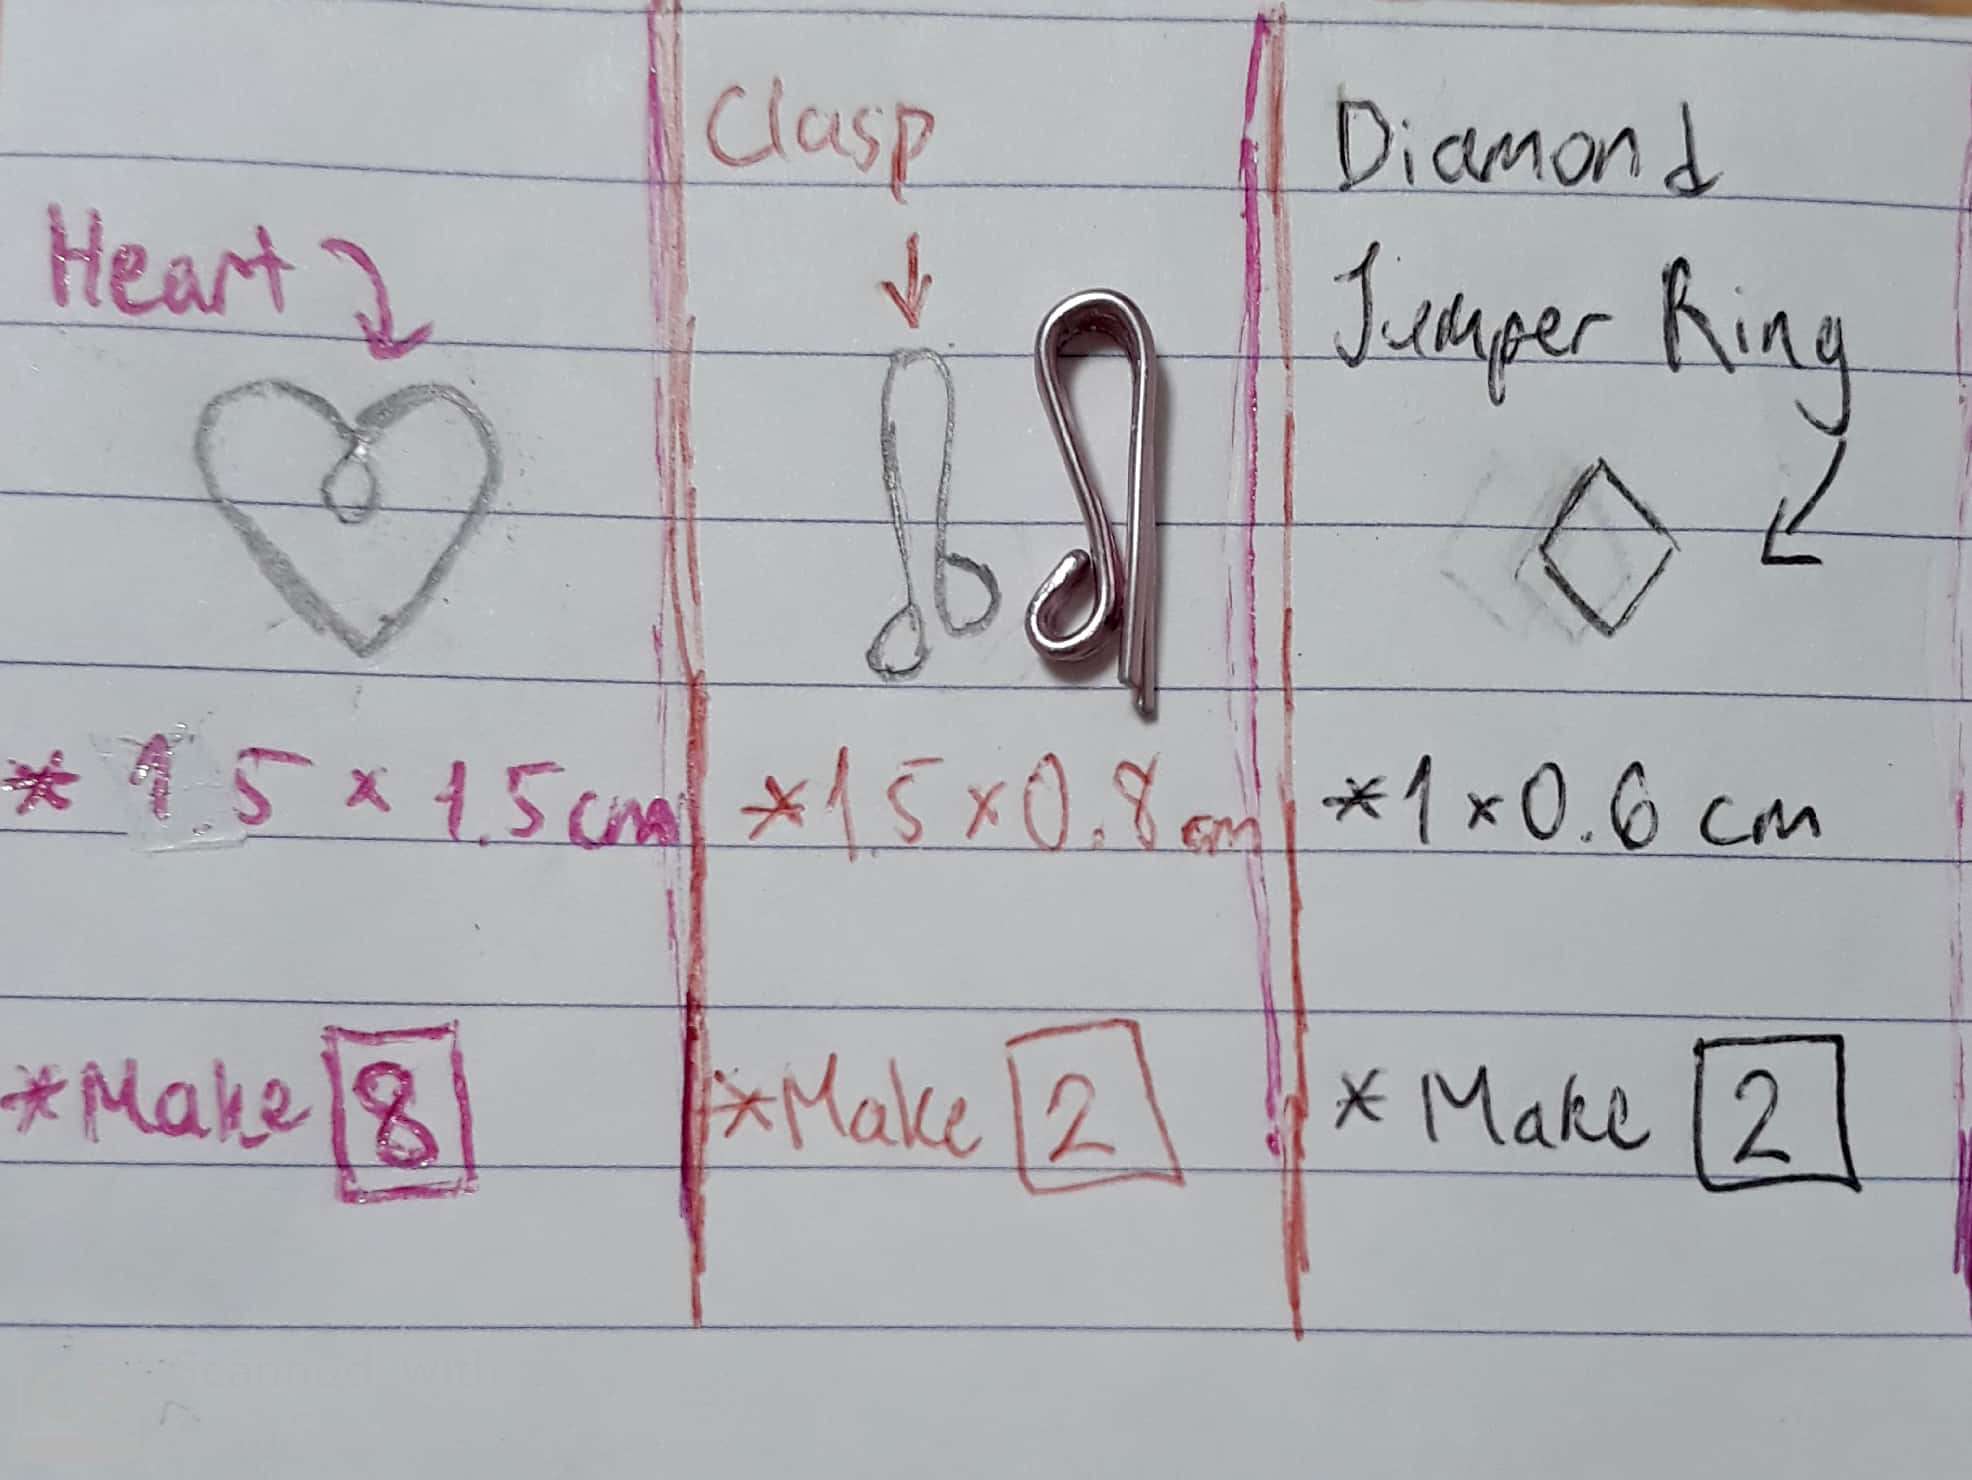 Heart
* 1.5 × 1.5cm
*Make 8
Clasp
*1.5 × 0.8cm
*Make 2
Diamond
Jumper Ring
*1 × 0.6 cm
* Make 2